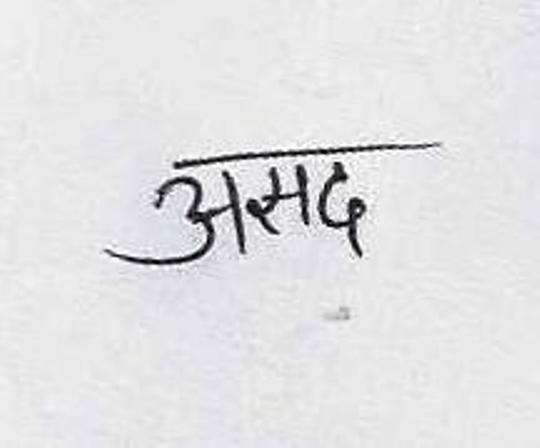 असद